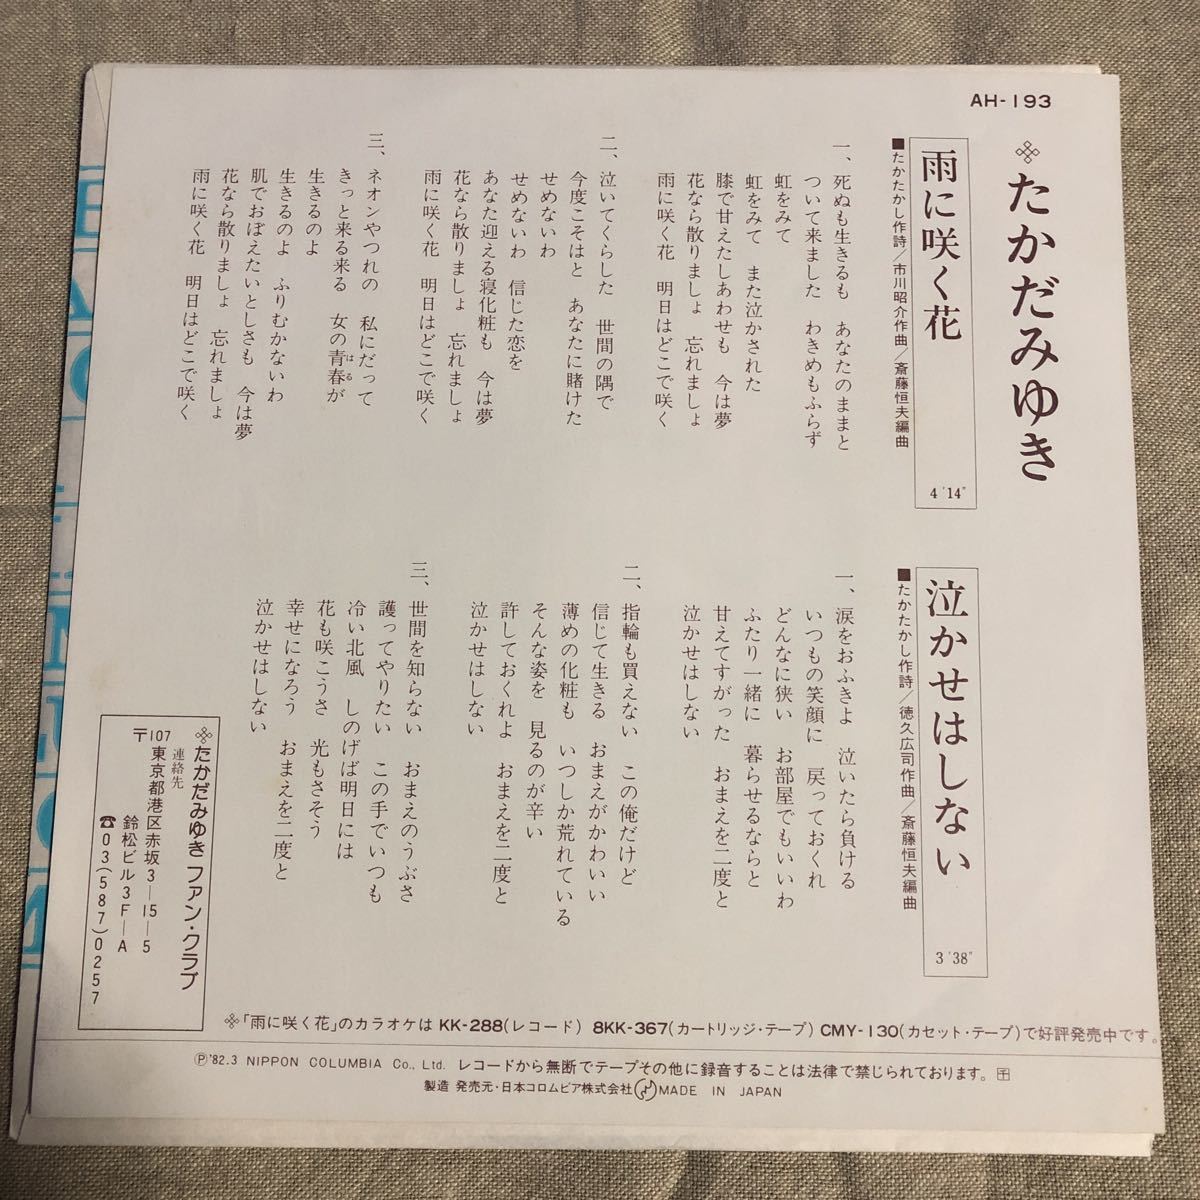 AH-193
たかだみゆき
雨に咲く花
4'14"
■たかたかし作詩／市川昭介作曲／斎藤恒夫編曲
一、死ぬも生きるも　あなたのままと
ついて来ました　わきめもふらず
虹をみて
虹をみて　また泣かされた
膝で甘えたしあわせも　今は夢
花なら散りましょ　忘れましょ
雨に咲く花　明日はどこで咲く
二、泣いてくらした　世間の隅で
今度こそはと　あなたに賭けた
せめないわ
せめないわ　信じた恋を
あなた迎える寝化粧も　今は夢
花なら散りましょ　忘れましょ
雨に咲く花　明日はどこで咲く
三、ネオンやつれの　私にだって
きっと来る来る　女の青春が
はる
生きるのよ
生きるのよ　ふりむかないわ
肌でおぼえたいとしさも　今は夢
花なら散りましょ　忘れましょ
雨に咲く花　明日はどこで咲く
泣かせはしない
3'38"
■たかたかし作詩／徳久広司作曲／斎藤恒夫編曲
一、涙をおふきよ　泣いたら負ける
いつもの笑顔に　戻っておくれ
どんなに狭い　お部屋でもいいわ
ふたり一緒に　暮らせるならと
甘えてすがった　おまえを二度と
泣かせはしない
二、指輪も買えない　この俺だけど
信じて生きる　おまえがかわいい
薄めの化粧も　いつしか荒れている
そんな姿を　見るのが辛い
許しておくれよ　おまえを二度と
泣かせはしない
三、世間を知らない　おまえのうぶさ
護ってやりたい　この手でいつも
冷い北風　しのげば明日には
花も咲こうさ　光もさそう
幸せになろう　おまえを二度と
泣かせはしない
たかだみゆき ファン・クラブ
連絡先
〒107
東京都港区赤坂3—15—5
鈴松ビル3F—A
☎03(587)0257
「雨に咲く花」のカラオケは KK-288(レコード) 8KK-367(カートリッジ・テープ) CMY-130(カセット・テープ)で好評発売中です。
Ⓟ'82.3 NIPPON COLUMBIA Co., Ltd. レコードから無断でテープその他に録音することは法律で禁じられております。
製造 発売元・日本コロムビア株式会社 MADE IN JAPAN